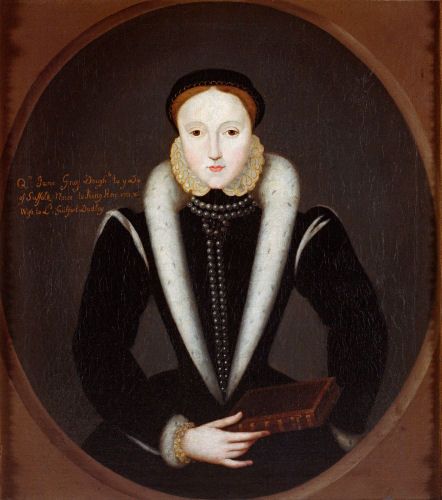 Qn Jane Gray Daughr to ye Du
of Suffolk Niece to King Hen
Wife to Ld Guilford Dudley